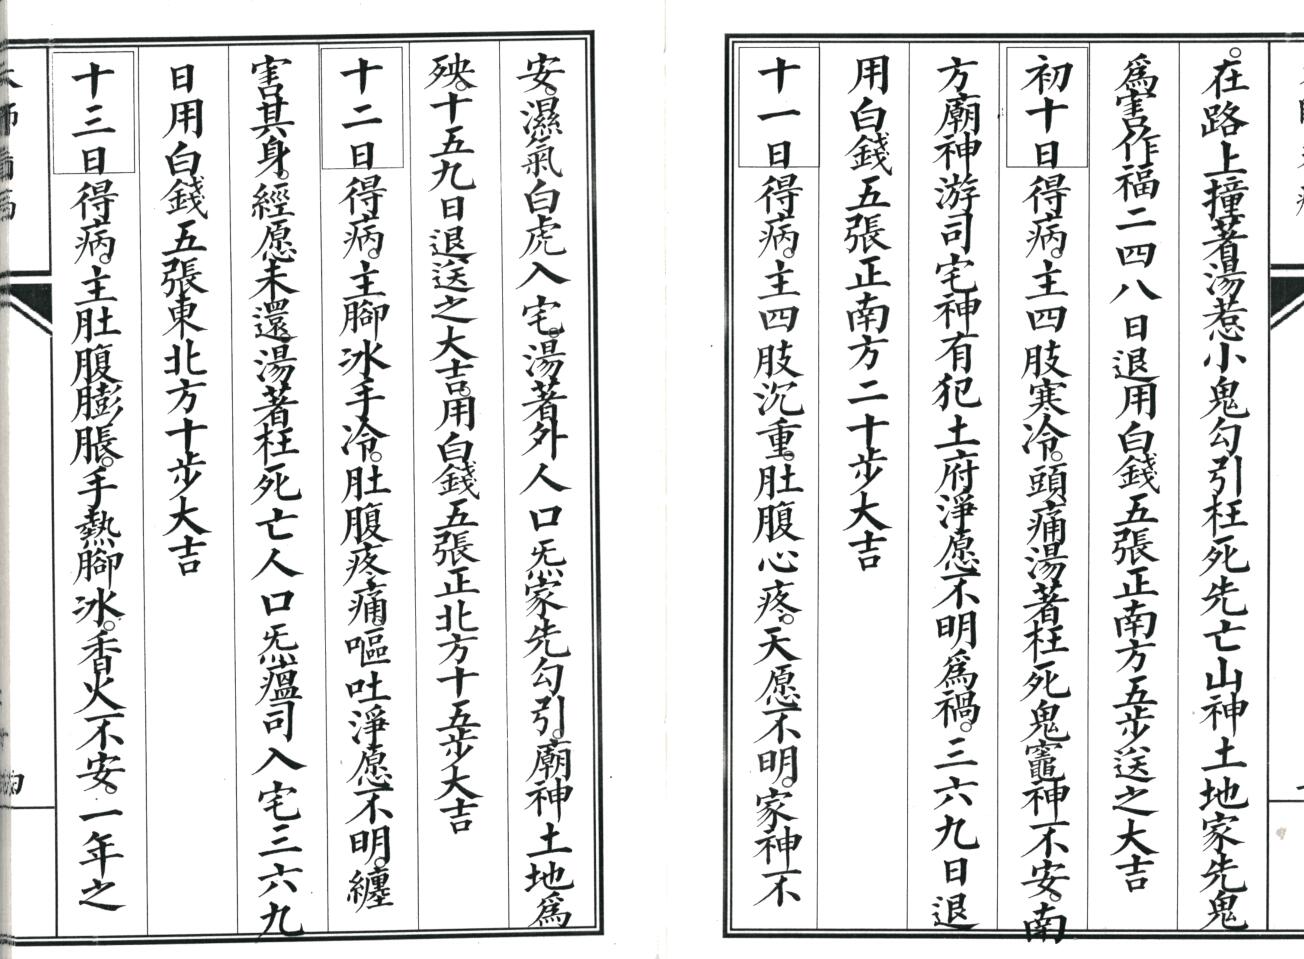 在路上撞著湯惹小鬼勾引枉死先亡山神土地家先鬼
爲害作福二四八日退用白錢五張正南方五步送之大吉
初十日得病。主四肢寒冷。頭痛湯著枉死鬼竈神不安。南
方廟神游司宅神有犯土府淨愿不明爲禍。三六九日退
用白錢五張正南方二十步大吉
十一日得病。主四肢沉重。肚腹心疼。天愿不明。家神不
安。濕氣白虎入宅。湯著外人口炁家先勾引。廟神土地爲
殃。十五九日退送之大吉。用白錢五張正北方十五步大吉
十二日得病。主腳冰手冷。肚腹疼痛。嘔吐淨愿不明。纏
害其身。經愿未還湯著枉死亡人口炁瘟司入宅三六九
日用白錢五張東北方十步大吉
十三日得病。主肚腹膨脹。手熱腳冰。香火不安。一年之